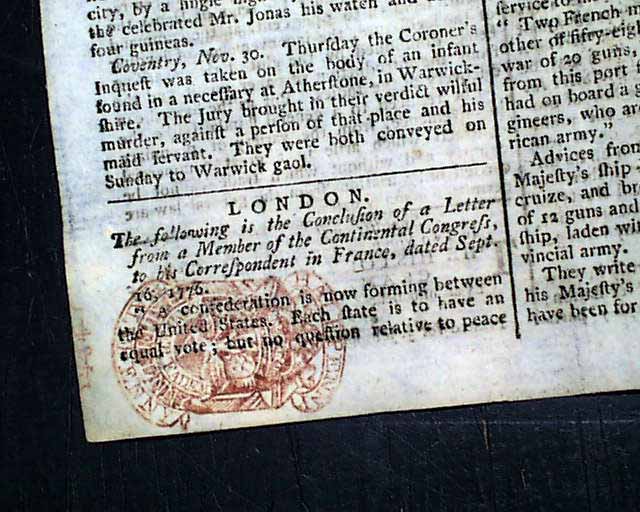 city, by a single
the celebrated Mr. Jonas his watch and
four guineas.
Coventry, Nov. 30. Thurſday the Coroner's
Inqueſt was taken on the body of an infant
found in a neceſſary at Atherſtone, in Warwick-
ſhire. The Jury brought in their verdict wilful
murder, againſt a perſon of that place and his
maid ſervant. They were both conveyed on
Sunday to Warwick gaol.
LONDON.
The following is the Concluſion of a Letter
from a Member of the Continental Congreſs,
to his Correſpondent in France, dated Sept.
16, 1776.
" A confederation is now forming between
the United States. Each ſtate is to have an
equal vote; but no queſtion relative to peace
ſervice to
" Two French
other of fifty-eig
war of 20 guns,
from this port
had on board a
gineers, who a
rican army."
Advices from
Majeſty's ſhip
cruize, and
of 12 guns and
ſhip, laden wi
vincial army.
They write
his Majeſty's
have been for